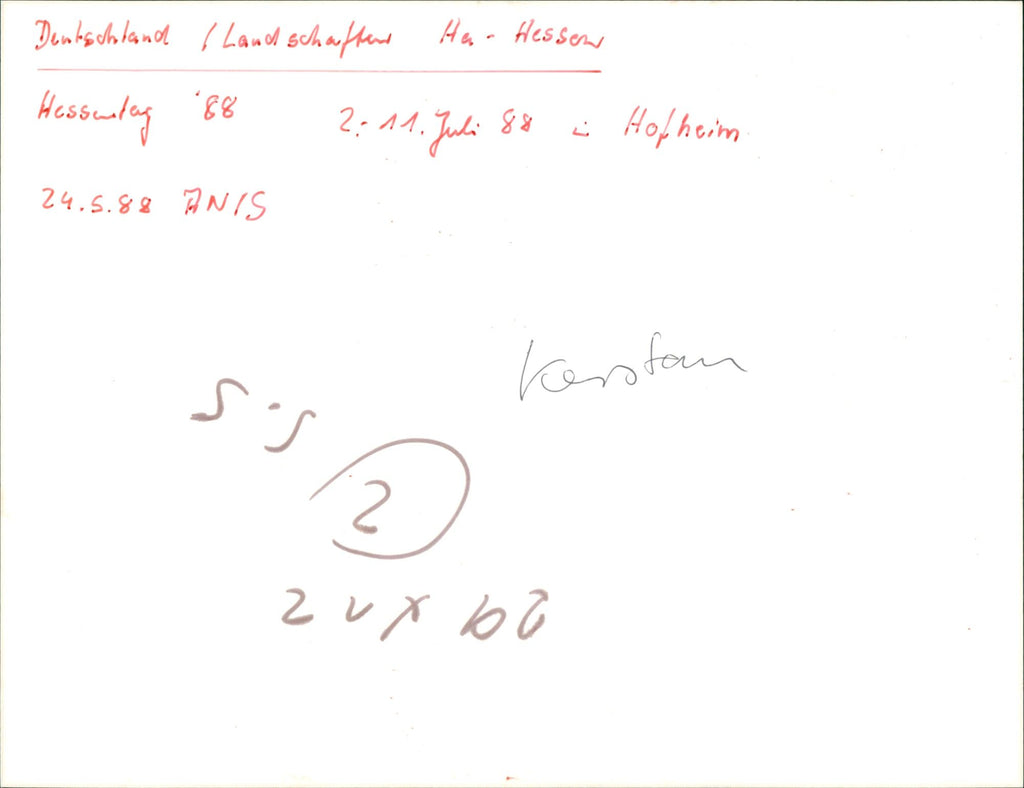 Deutschland / Landschaften Ha - Hessen
Hessentag '88 2.-11. Juli 88 in Hofheim
24.5.88 ANIS
Kerstan
5-5
2